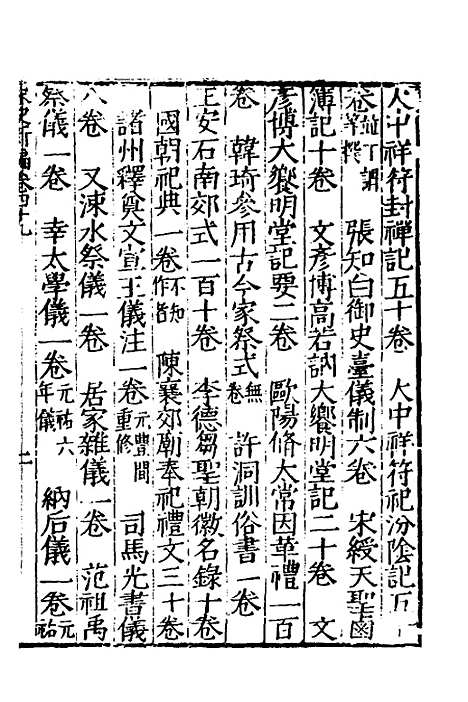 大中祥符封禪記五十卷　大中祥符祀汾陰記五十
卷並丁謂等撰　張知白御史臺儀制六卷　宋綬天聖鹵
簿記十卷　文彥博高若訥大饗明堂記二十卷　文
彥博大饗明堂記要二卷　歐陽脩太常因革禮一百
卷　韓琦參用古今家祭式無卷　許洞訓俗書一卷
王安石南郊式一百十卷　李德芻聖朝徽名錄十卷
國朝祀典一卷不知作者　陳襄郊廟奉祀禮文三十卷
諸州釋奠文宣王儀注一卷元豐間重修　司馬光書儀
八卷　又涑水祭儀一卷　居家雜儀一卷　范祖禹
祭儀一卷　幸太學儀一卷元祐六年儀　納后儀一卷元祐
宋史新編卷四十九　二